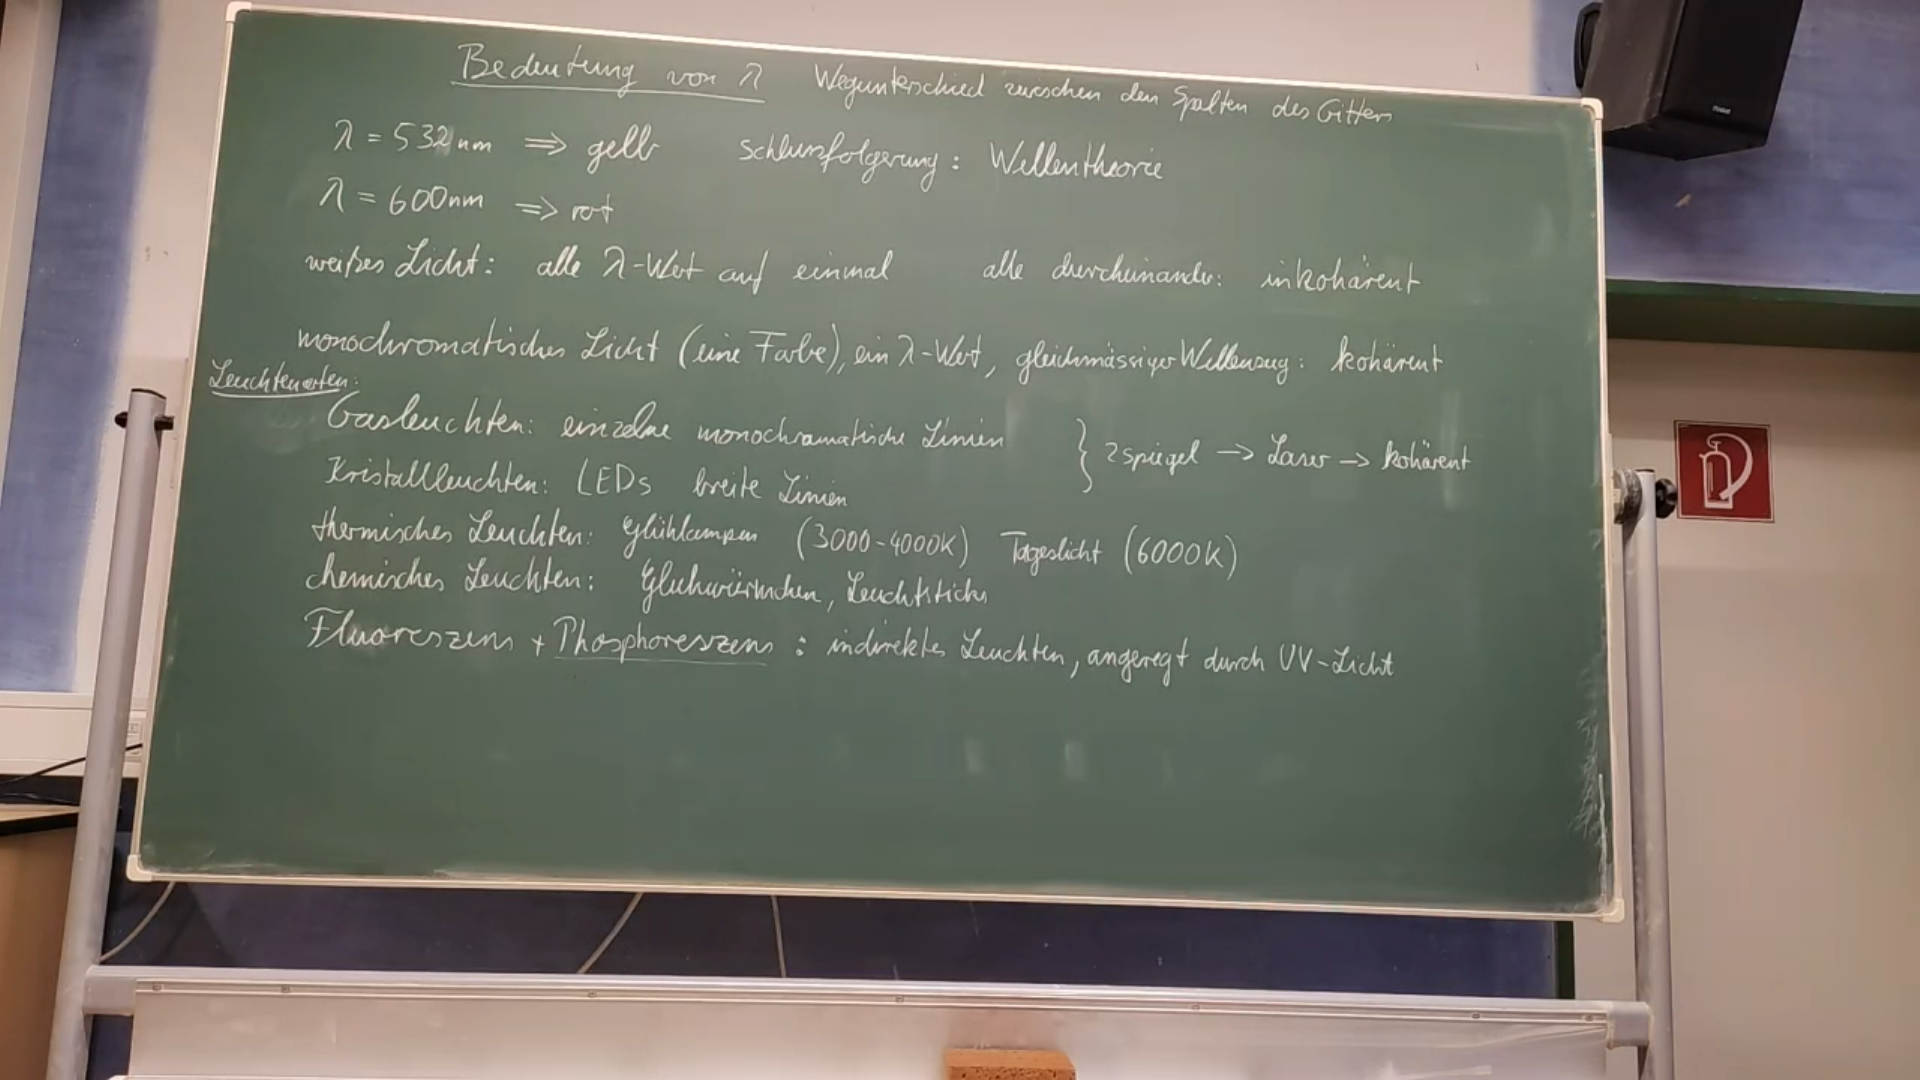 Bedeutung von λ Wegunterschied zwischen den Spalten des Gitters
λ = 532 nm ⇒ gelb schlussfolgerung: Wellentheorie
λ = 600nm ⇒ rot
weißes Licht: alle λ-Wert auf einmal alle durcheinander: inkohärent
monochromatisches Licht (eine Farbe), ein λ-Wert, gleichmässiger Wellenzug: kohärent
Leuchtenarten:
Gasleuchten: einzelne monochromatische Linien
} 2 spiegel → Laser → kohärent
Kristallleuchten: LEDs breite Linien
thermisches Leuchten: Glühlampen (3000-4000K) Tageslicht (6000K)
chemisches Leuchten: Glühwürmchen, Leuchtsticks
Fluoreszens + Phosphoreszens: indirektes Leuchten, angeregt durch UV-Licht